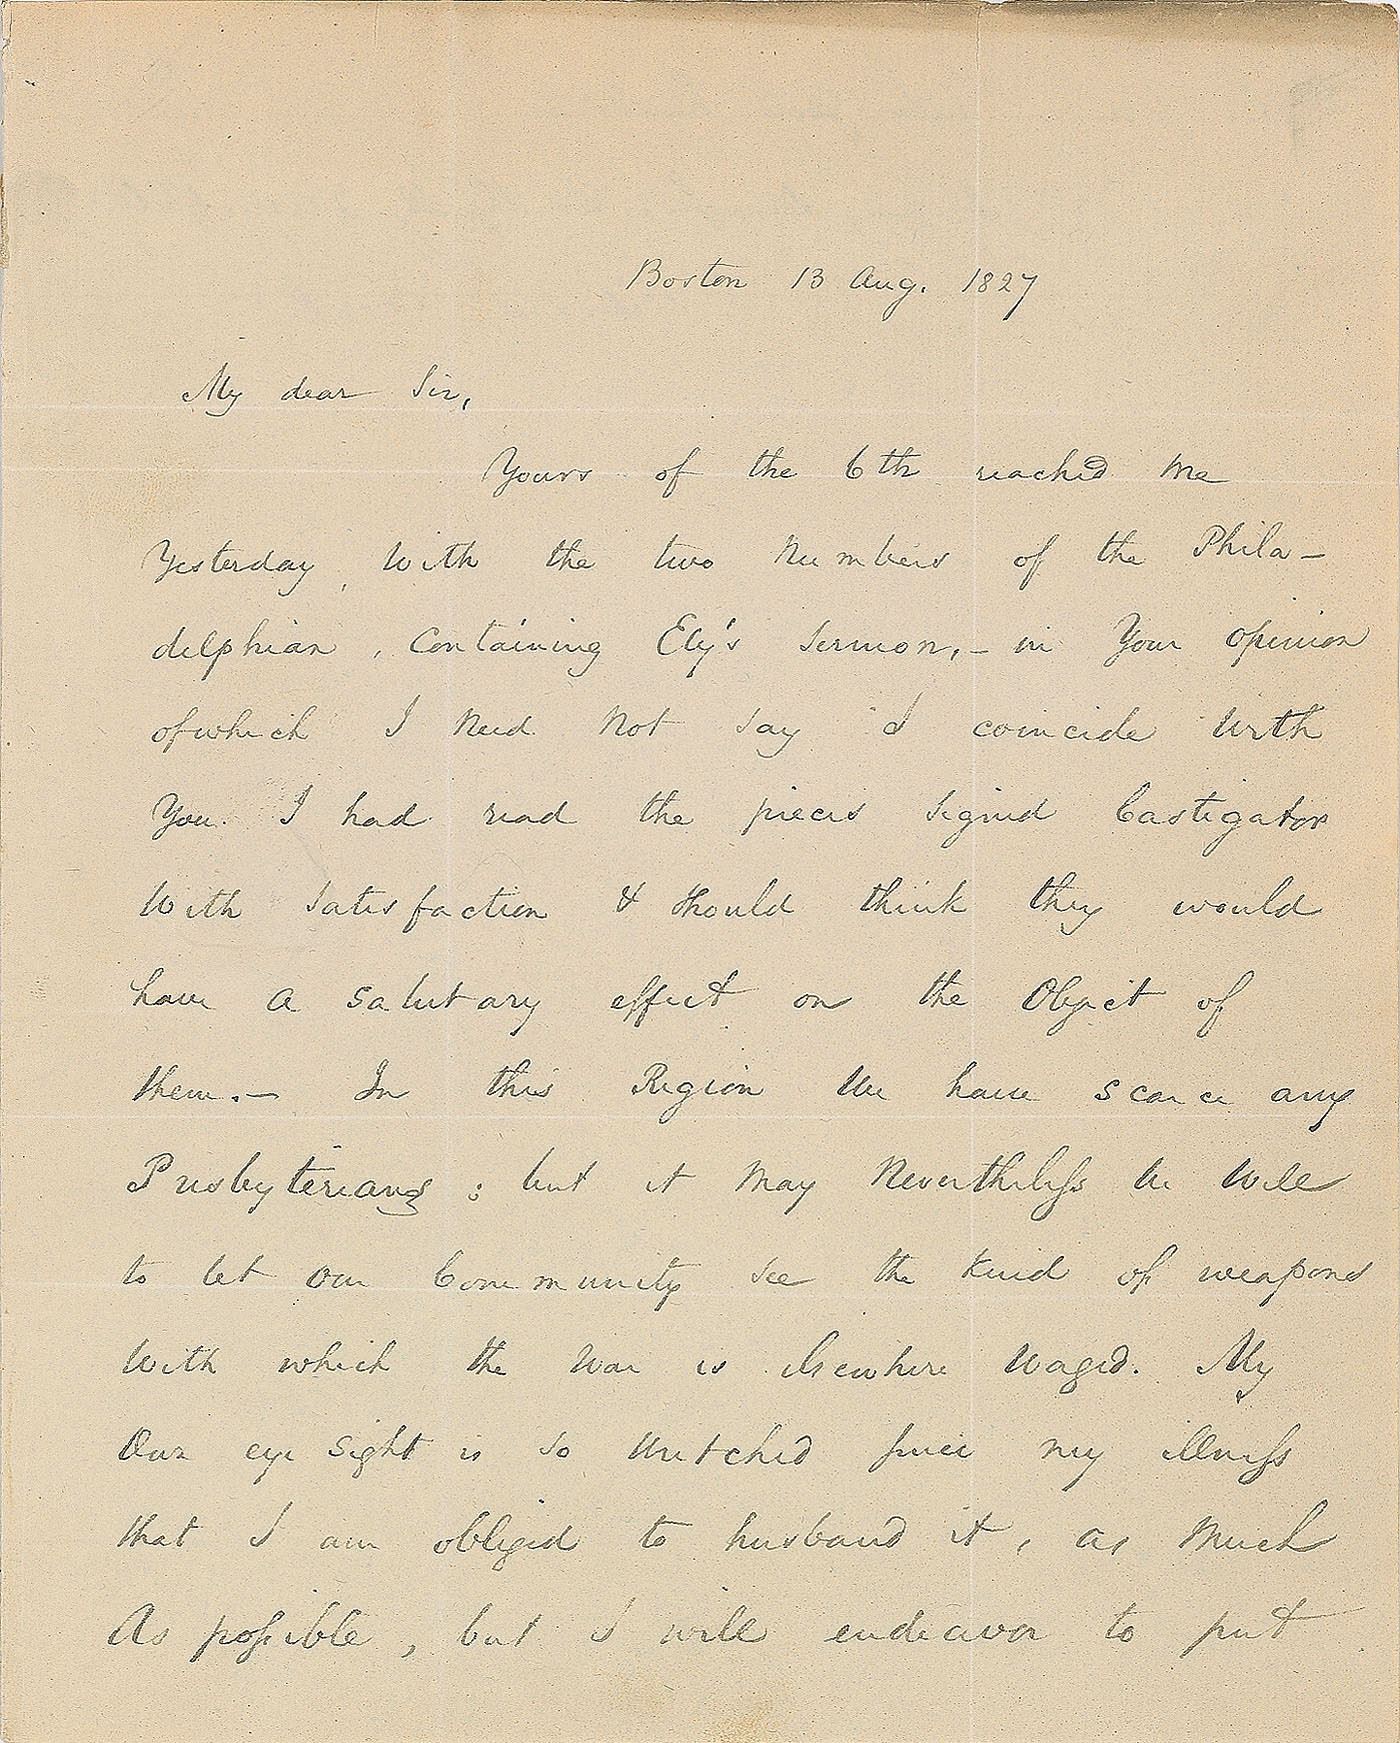 Boston 13 Aug. 1827
My dear Sir,
Yours of the 6th reached me
Yesterday, with the two Numbers of the Phila-
delphian, Containing Ely's Sermon,- in Your opinion
of which I Need Not say I coincide with
You. I had read the pieces signed Castigator
With satisfaction & should think they would
have a salutary effect on the Object of
them.- In this Region We have scarce any
Presbyterians; but it May Nevertheless be well
to let our Community see the kind of weapons
With which the War is elsewhere Waged. My
Own eye sight is so wretched since my illness
that I am obliged to husband it, as Much
As possible, but I will endeavor to put